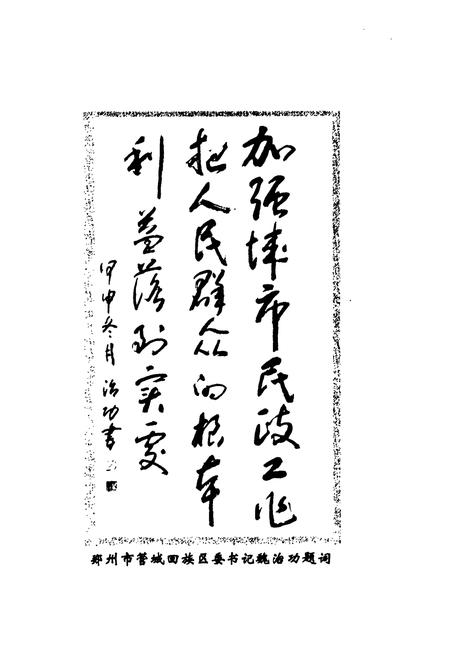 加强城市民政工作
把人民群众的根本
利益落到实处
甲申冬月 治功书
郑州市管城回族区委书记魏治功题词